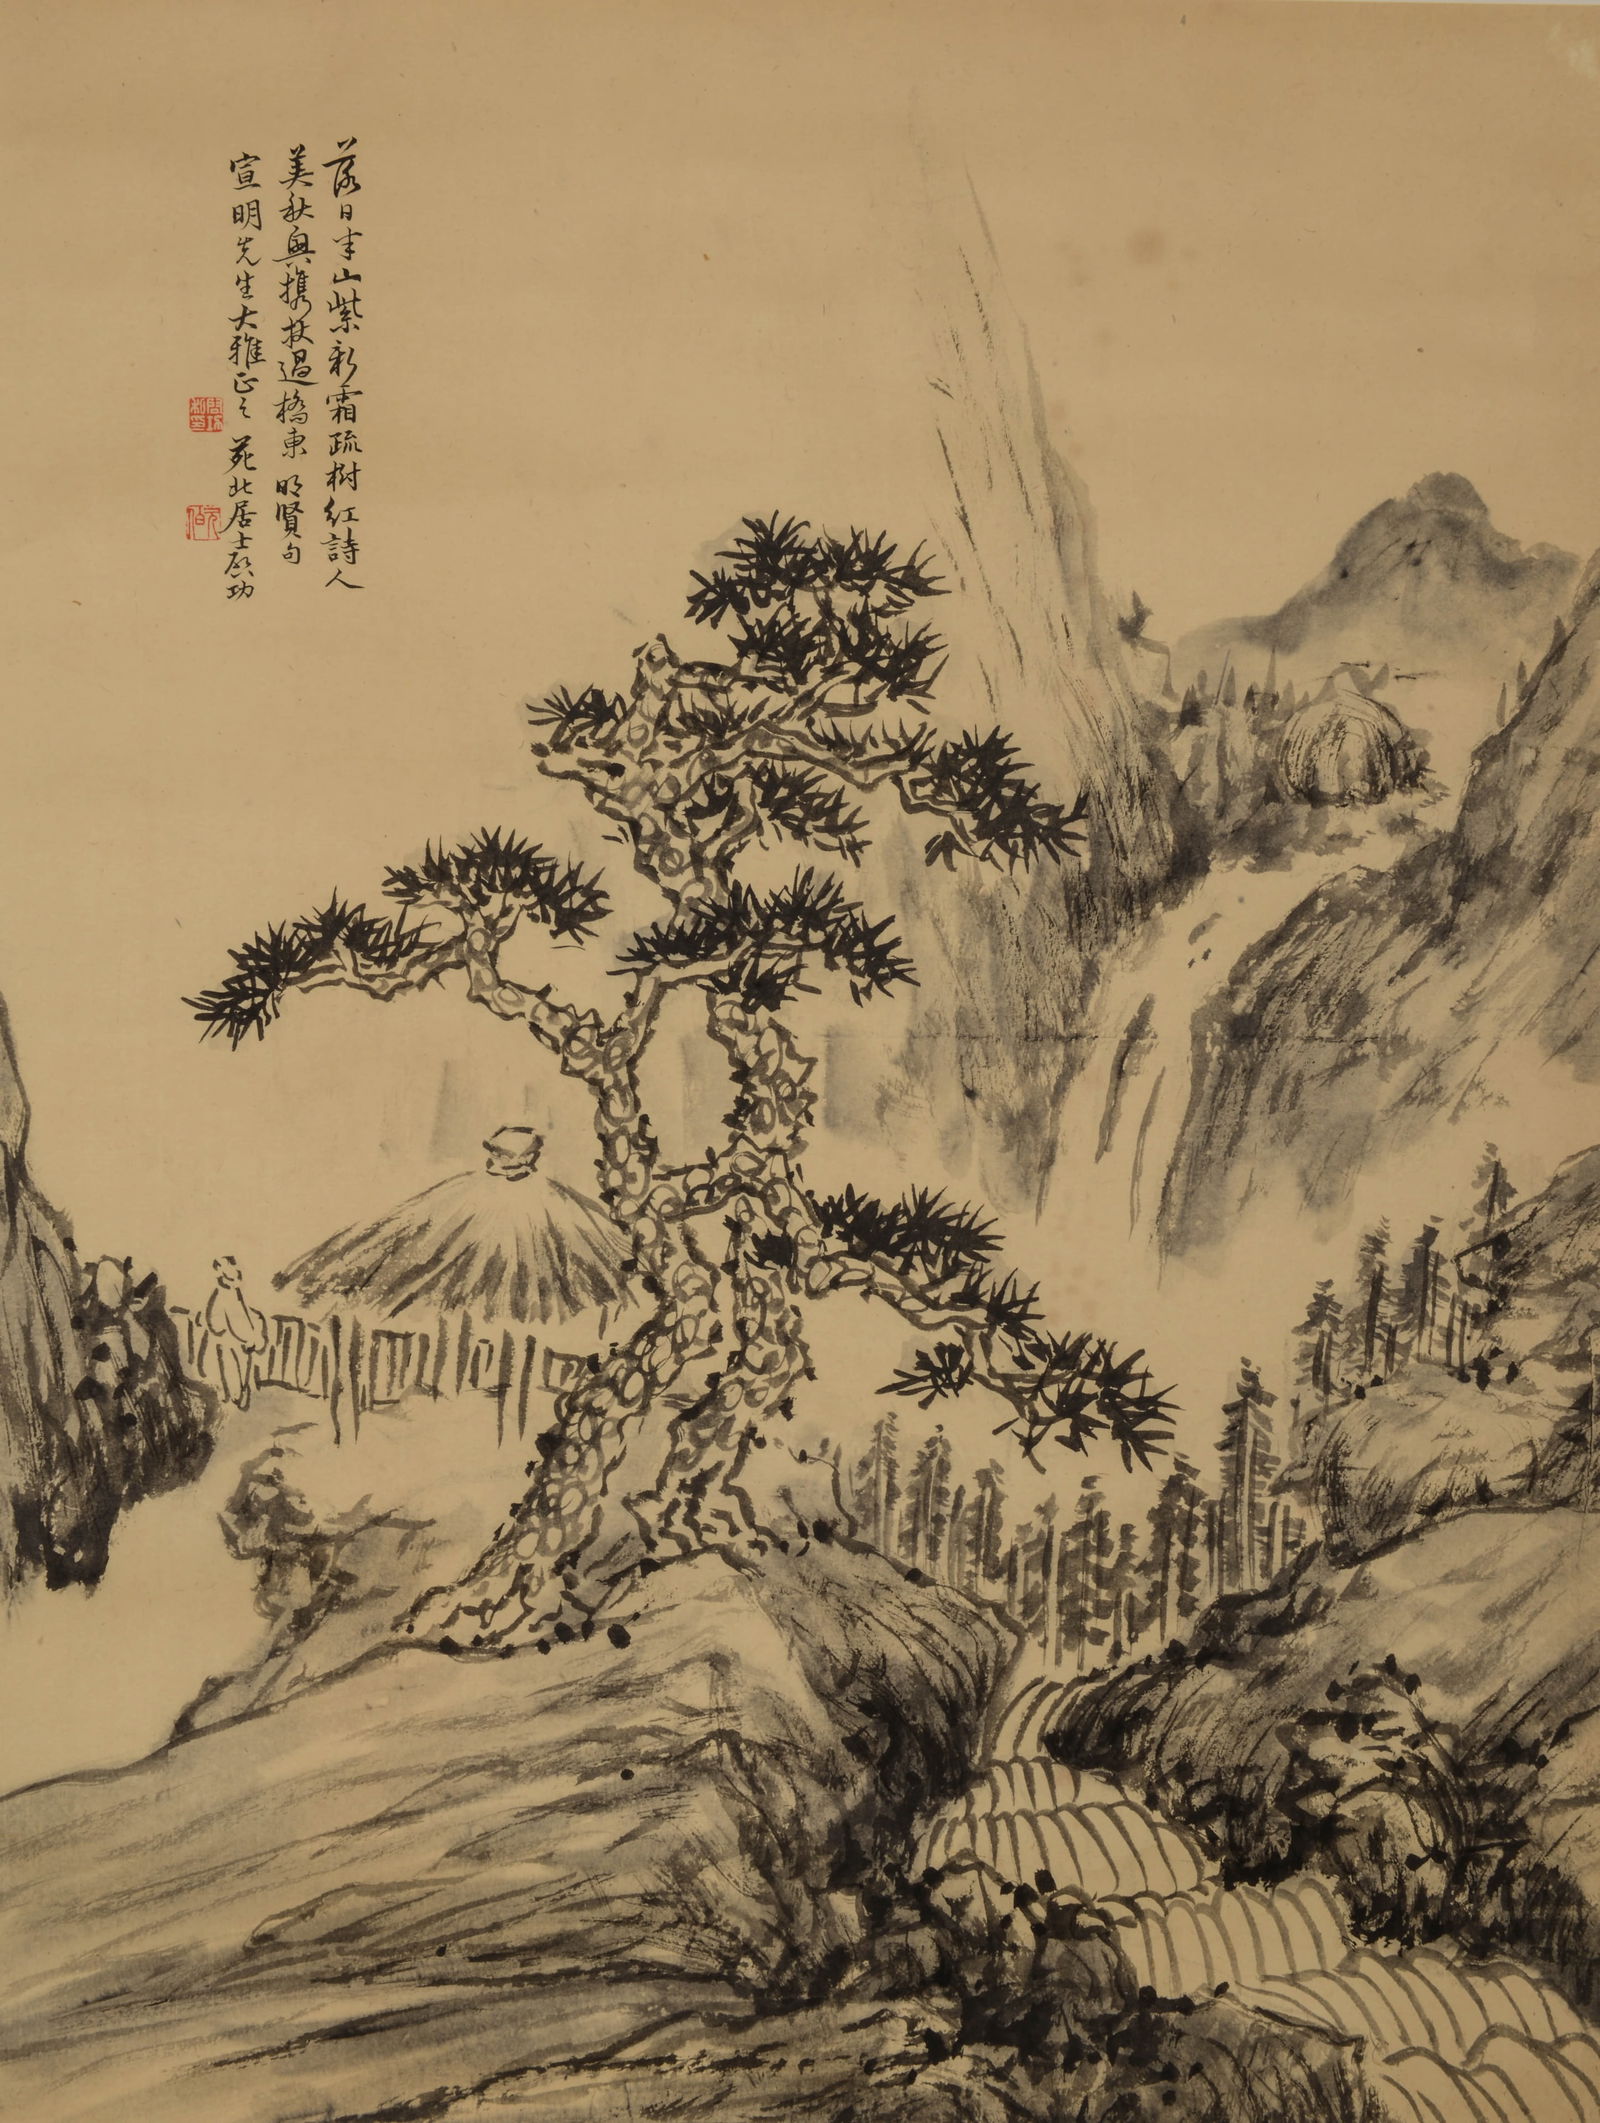 落日半山紫新霜疏樹紅詩人
美秋興攜杖過橋東 明賢句
宣明先生大雅正之 苑北居士啟功
啟功
元白